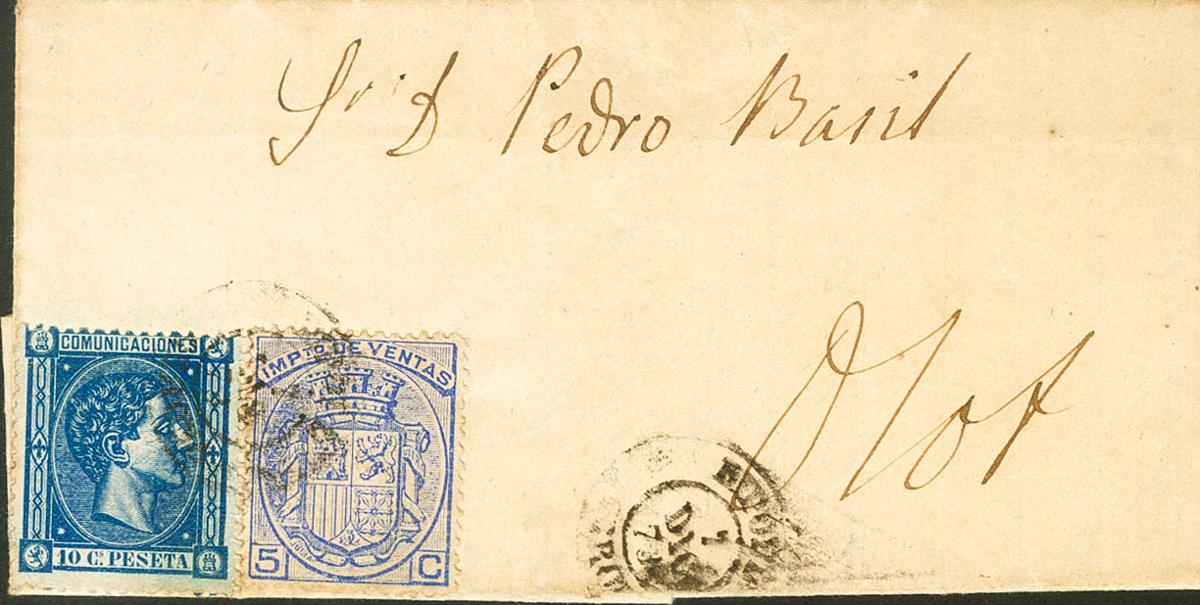 Sr D Pedro Basil
Olot
COMUNICACIONES
10 Cs PESETA
IMPto DE VENTAS
5 C
1
DIC